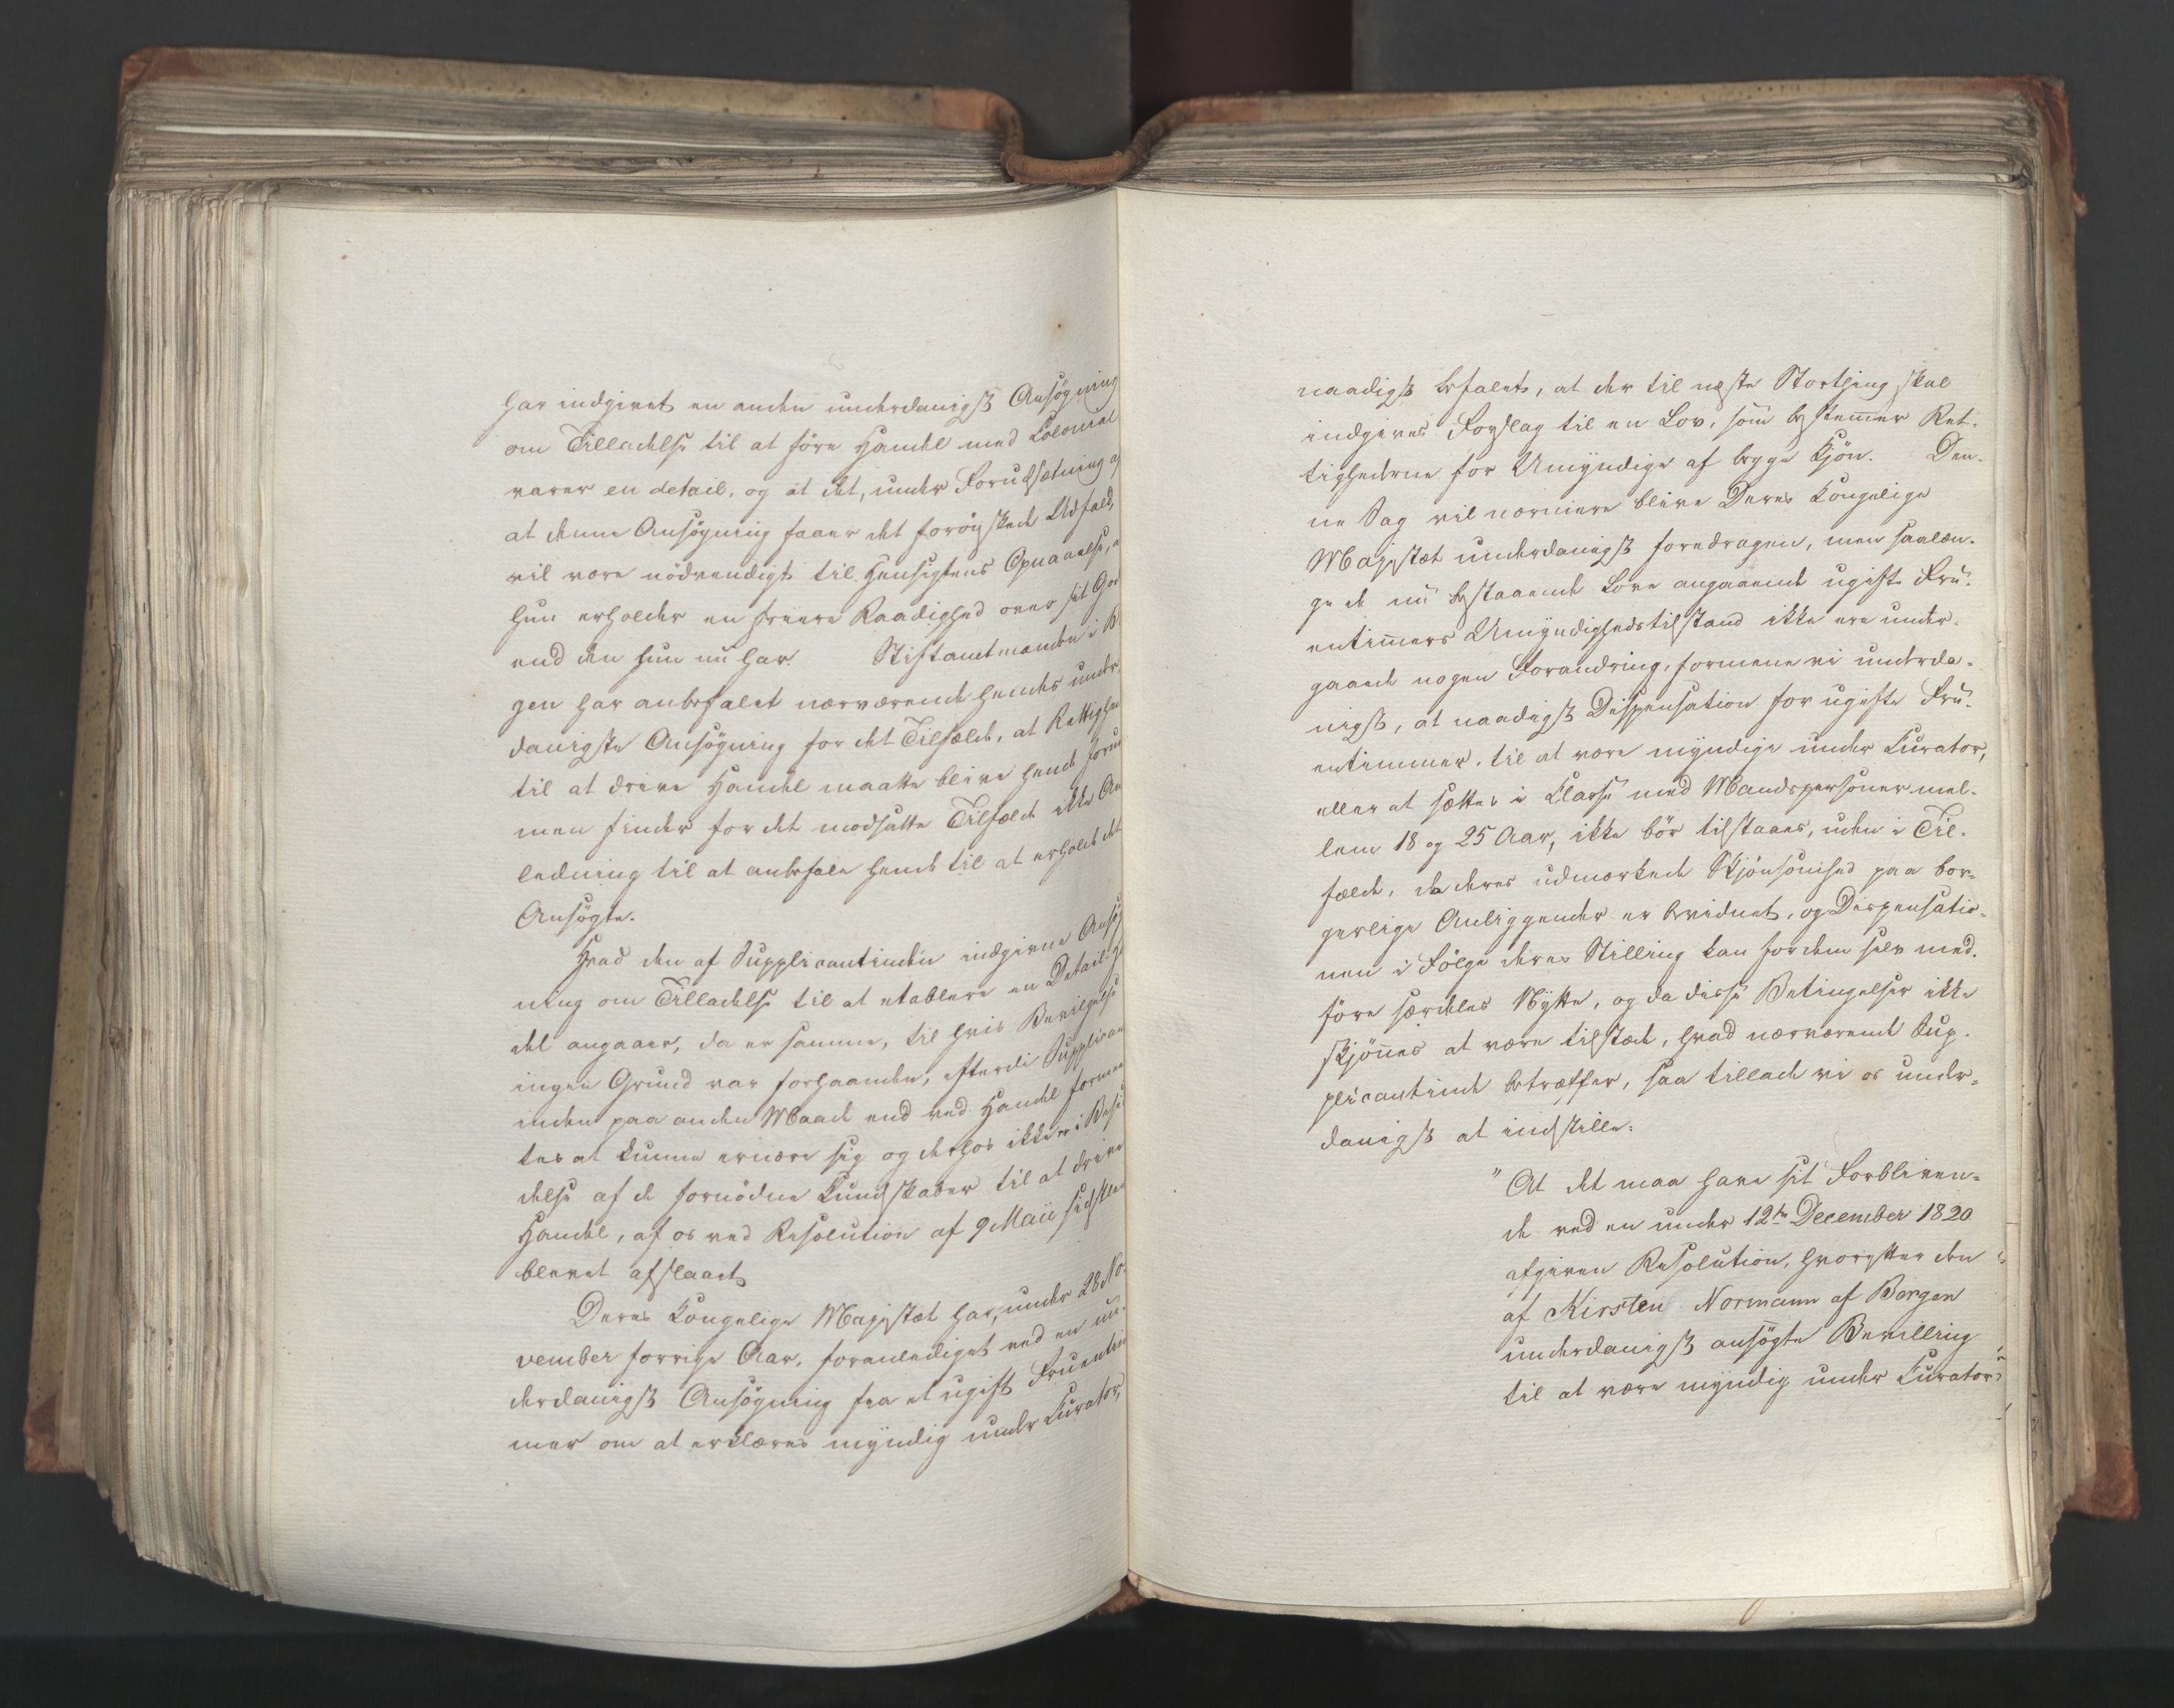 har indgivet en anden underdanigst Ansøgning
om Tilladelse til at føre Handel med Colonial
varer en detail, og at det, under Forudsætning a
at denne Ansøgning faaer det forøn̄skede Udfald,
vil være nödvendigt til Hensigtens Opnaaelse, a
hun erholder en friere Raadighed over sit God
end den hun nu har. Stiftamtmanden i B
gen har anbefalet nærværende hendes under-
danigste Ansøgning for det Tilfælde, at Rettighe
til at drive Handel maatte blive hende forun
men finder for det modsatte Tilfælde ikke An
ledning til at anbefale hende til at erholde det
Ansøgte.
Hvad den af Supplicantinden indgivne Ansøg
ning om Tilladelse til at etablere en Detail-
del angaaer, da er samme, til hvis Bevilgelse
ingen Grund var forhaanden, efterdi Supplican
inden paa anden Maade end ved Handel formen
tes at kunne ernære sig og derhos ikke er i Besid
delse af de fornødne Kundskaber til at drive
Handel, af os ved Resolution af 9 Maii sidstled
blevet afslaaet
Deres Kongelige Majestæt har, under 28 No-
vember forrige Aar, foranlediget ved en un-
derdanigst Ansøgning fra et ugift Fruentim
mer om at erklæres myndig under Curator,
naadigst befalet, at der til næste Storthing skal
indgives Forslag til en Lov, som bestem̄er Ret-
tighederne for Umyndige af begge Kjøn. Den-
ne Sag vil nærmere blive Deres Kongelige
Majestæt underdanigst foredragen, men saalæn-
ge de nu bestaaende Love angaaende ugifte Fru-
entim̄ers Umyndighedstilstand ikke ere under-
gaaede nogen Forandring, formene vi underda-
nigst, at naadigst Dispensation for ugifte Fru-
entimmer, til at være myndige under Curator,
eller at sættes i Classe med Mandspersoner mel-
lem 18 og 25 Aar, ikke bör tilstaaes, uden i Til-
fælde, da deres udmærkede Skjønsomhed paa bor-
gerlige Anliggender er bevidnet, og Dispensatio-
nen i Følge deres Stilling kan for dem selv med-
føre særdeles Nytte, og da disse Betingelser ikke
skjøn̄es at være tilstæde, hvad nærværende Sup-
plicantinde betræffer, saa tillade vi os under-
danigst at indstille:
" At det maa have sit Forbliven-
de ved en under 12te December 1820
afgiven Resolution, hvorefter den
af Kirsten Normann af Bergen
underdanigst ansøgte Bevilling
til at være myndig under Curator,